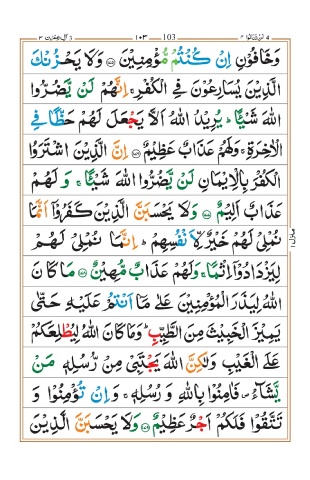 لن تنالوا ٤ 103 ١٠٣ اٰل عمرٰن ٣
وَخَافُوْنِ اِنْ كُنْتُمْ مُّؤْمِنِيْنَ ۝ وَلَا يَحْزُنْكَ
الَّذِيْنَ يُسَارِعُوْنَ فِي الْكُفْرِ ۚ اِنَّهُمْ لَنْ يَّضُرُّوا
اللّٰهَ شَيْـًٔا ؕ يُرِيْدُ اللّٰهُ اَلَّا يَجْعَلَ لَهُمْ حَظًّا فِي
الْاٰخِرَةِ ۚ وَلَهُمْ عَذَابٌ عَظِيْمٌ ۝ اِنَّ الَّذِيْنَ اشْتَرَوُا
الْكُفْرَ بِالْاِيْمَانِ لَنْ يَّضُرُّوا اللّٰهَ شَيْـًٔا ۚ وَلَهُمْ
عَذَابٌ اَلِيْمٌ ۝ وَلَا يَحْسَبَنَّ الَّذِيْنَ كَفَرُوْۤا اَنَّمَا
نُمْلِيْ لَهُمْ خَيْرٌ لِّاَنْفُسِهِمْ ؕ اِنَّمَا نُمْلِيْ لَهُمْ
لِيَزْدَادُوْۤا اِثْمًا ۚ وَلَهُمْ عَذَابٌ مُّهِيْنٌ ۝ مَا كَانَ
اللّٰهُ لِيَذَرَ الْمُؤْمِنِيْنَ عَلٰى مَاۤ اَنْتُمْ عَلَيْهِ حَتّٰى
يَمِيْزَ الْخَبِيْثَ مِنَ الطَّيِّبِ ؕ وَمَا كَانَ اللّٰهُ لِيُطْلِعَكُمْ
عَلَى الْغَيْبِ وَلٰكِنَّ اللّٰهَ يَجْتَبِيْ مِنْ رُّسُلِهٖ مَنْ
يَّشَآءُ ۪ فَاٰمِنُوْا بِاللّٰهِ وَرُسُلِهٖ ۚ وَاِنْ تُؤْمِنُوْا وَ
تَتَّقُوْا فَلَكُمْ اَجْرٌ عَظِيْمٌ ۝ وَلَا يَحْسَبَنَّ الَّذِيْنَ
منزل ١